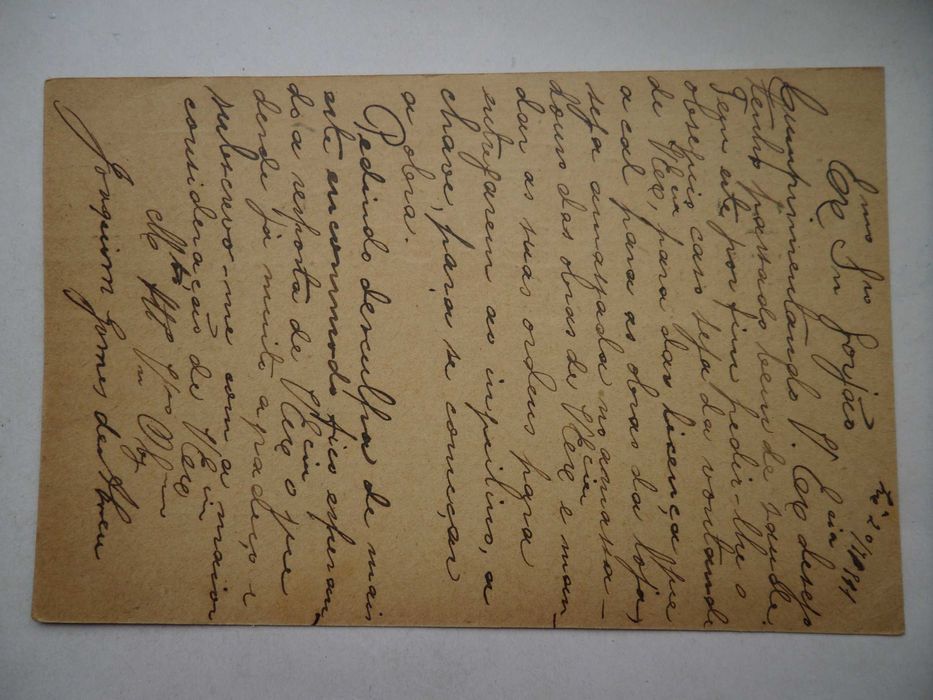 Immo Snr
Exo Snr Gorjão
20/1/91
Cumprimentando V. Excia desejo
tenha passado bem de saude.
Tem este por fim pedir-lhe o
obsequio caso seja da vontade
de V. Excia para dar licença que
a cal para as obras da loja,
seja amassada no amassa-
douro das obras de V. Excia e man
dar as suas ordens para
entregarem ao inquilino, a
chave, para se começar
a obra.
Pedindo desculpa de mais
este encommodo fico esperan
do a resposta de V. Excia o que
desde já muito agradeço e
subscrevo-me com a maior
consideração de V. Excia
Mto Atto Vor Obgo
Joaquim Gomes de Abreu